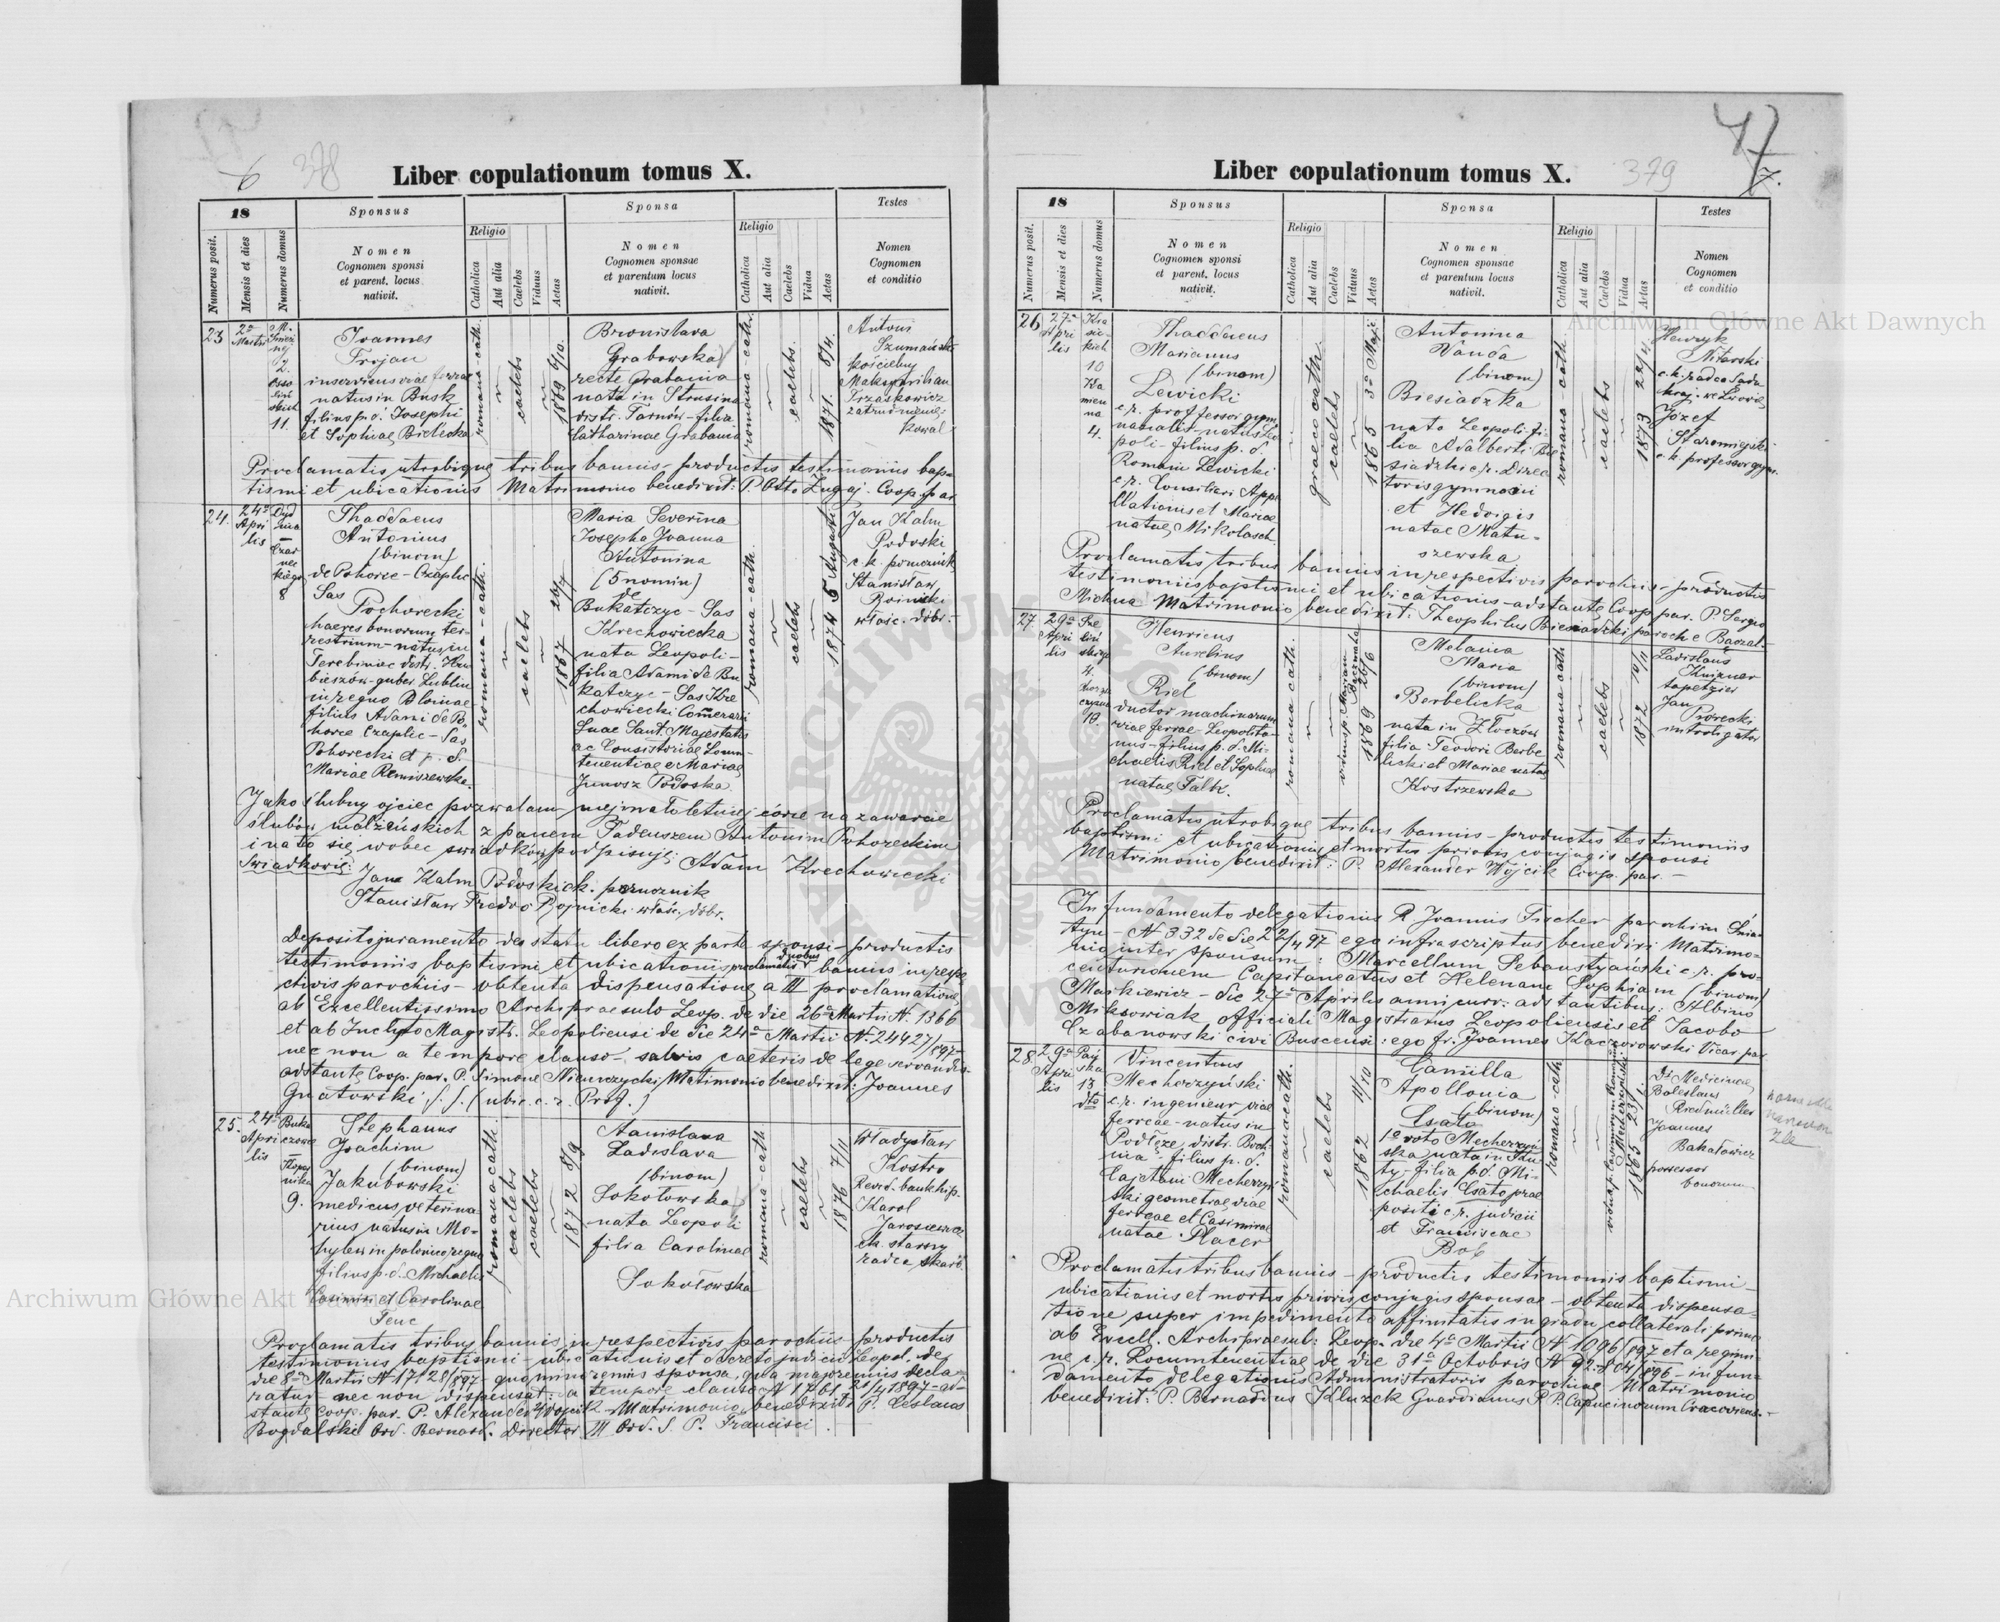 6 378
Liber copulationum tomus X.
18
Sponsus
Sponsa
Testes
Numerus posit.
Mensis et dies
Numerus domus
Nomen
Cognomen sponsi
et parent. locus
nativit.
Religio
Catholica
Aut alia
Caelebs
Viduus
Aetas
Nomen
Cognomen sponsae
et parentum locus
nativit.
Religio
Catholica
Aut alia
Caelebs
Vidua
Aetas
Nomen
Cognomen
et conditio
23
2a
Martii
11.
Joannes
Trojan
inserviens viae ferreae
natus in Busk
filius p. d. Josephi
et Sophiae Bielecka
romana-cath.
caelebs
1869 6/10.
Bronislava
Grabowska
recte Grabania
nata in Strusina
distr. Tarnów-filia
Catharinae Grabania
romana-cath.
caelebs.
1871. 8/4.
Antoni
Szumański
kościelny
Maksymilian
Trzaskowicz
kowal
Proclamatis utrobique tribus bannis-productis testimoniis bap-
tismi et ubicationis Matrimonio benedixit: P. Otto Coop. par.
24.
24a
Apri
lis
8
Thaddaeus
Antonius
(binom)
de Pohorce-Czaplic
Sas
Pohorecki
haeres bonorum ter-
restrium-natus in
Terebiniec distr. Hru-
bieszów-guber. Lublin
in regno Poloniae
filius Adami de Po-
horce Czaplic-Sas
Pohorecki et p. d.
Mariae Remiszewska.
romana-cath.
caelebs
1867 26/4
Maria Severina
Josepha Joanna
Antonina
(5 nomin)
de
Bukatczyc-Sas
Krechowiecka
nata Leopoli-
filia Adami de Bu
katczyc-Sas Kre
chowiecki
Suae Sanct. Majestatis
Junosz Podoska
romana-cath.
caelebs
1874 5 Augusti
Jan Kalm
Podoski
c. k. porucznik
Stanisław
Rojnicki
właśc. dóbr.-
Jako ślubny ojciec pozwalam mej małoletniej córce na zawarcie
ślubów małżeńskich z panem Tadeuszem Antonim Pohoreckim
i na to się wobec świadków podpisuję: Adam Krechowiecki
Świadkowie:
Jan Kalm Podoski c. k. porucznik
Stanisław Fredro Rojnicki właśc. dóbr.
Deposito juramento de statu libero ex parte sponsi-productis
testimoniis baptismi et ubicationis proclamatis duobus bannis in respe-
ctivis parochiis-obtenta dispensatione a III proclamatione
ab Excellentissimo Archipraesule Leop. de die 26a Martii N. 1366
et ab Inclyto Magistr. Leopoliensi de die 24a Martii N. 24427/897
nec non a tempore clauso-salvis caeteris de lege servandis-
adstante Coop. par. P. Simone Matrimonio benedixit: Joannes
Gnatowski
25.
24a
Apri
lis
9.
Stephanus
Joachim
(binom)
Jakubowski
medicus veterina
rius natus in Mo-
hylew in polonico regno
filius p. d. Michaelis
Casimiri et Carolinae
romana cath.
caelebs
caelebs
1872 8/9
Stanislava
Ladislava
(binom)
Sokołowska
nata Leopoli
filia Carolinae
Sokołowska
romana-cath
caelebs
1876 7/11
Władysław
Kostro
Karol
Jarosiewicz
c.k. starszy
radca skarb.
Proclamatis tribus bannis in respectivis parochiis-productis
testimoniis baptismi-ubicationis et decreto judicii Leopol. de
die 8a Martii N 17128/897-quo minorennis sponsa, qua majorennis decla-
ratur-nec non dispensat. a tempore clauso N 1761 21/4 1897-ad-
stante Coop. par. P. Alexandro Wojcik-Matrimonio benedixit: P. Ceslaus
Bogdalski Ord. Bernard. Director III Ord. S. P. Francisci.
47
379
7.
Liber copulationum tomus X.
18
Sponsus
Sponsa
Testes
Numerus posit.
Mensis et dies
Numerus domus
Nomen
Cognomen sponsi
et parent. locus
nativit.
Religio
Catholica
Aut alia
Caelebs
Viduus
Aetas
Nomen
Cognomen sponsae
et parentum locus
nativit.
Religio
Catholica
Aut alia
Caelebs
Vidua
Aetas
Nomen
Cognomen
et conditio
26
27a
Apri
lis
10
4.
Thaddaeus
Marianus
(binom)
Lewicki
c.r. professor gym
nasialis-natus Leo
poli-filius p. d.
Romani Lewicki
c.r. Consiliari Appe
llationis et Mariae
natae Mikolasch
graeco cath.
caelebs
1865 3a Maji
Antonina
Wanda
(binom)
Biesiadzka
nata Leopoli fi-
lia Adalberti Bie
siadzki c.r. Direc
toris gymnasii
et Hedvigis
natae Matu-
szewska
romana-cath.
caelebs
1873 22/4
Henryk
Nitarski
c.k. radca Sądu
kraj. we Lwowie
Józef
Staromiejski
c.k. professor gymn.
Proclamatis tribus bannis in respectivis parochiis-productis
testimoniis baptismi et ubicationis-adstante Coop. par. P. Sergio
Michna Matrimonio benedixit: Theophilus Biesiadzki paroch e Baczal.
27.
29a
Apri
lis
4.
10.
Henricus
Aurelius
(binom)
Riel
ductor machinarum
viae ferreae Leopolita-
nus-filius p. d. Mi-
chaelis Riel et Sophiae
natae Falk.
romana cath.
1869 26/6
Melania
Maria
(binom)
Berbelicka
nata in Złoczów
filia Teodori Berbe
licki et Mariae natae
Kostrzewska
romana cath
caelebs
1872 14/11
Ladislaus
tapetzier
Jan
Piórecki
introligator
Proclamatis utrobique tribus bannis-productis testimoniis
baptismi et ubicationis et mortis prioris conjugis sponsi
Matrimonio benedixit: P. Alexander Wójcik Coop. par.-
In fundamento delegationis R. Joannis Fischer parochi in Śnia-
tyn-N 332 de die 22/4 97 ego infrascriptus benedixi Matrimo-
nio inter sponsum: Marcellum Sebastyański c.r. pro-
centunomem Capitaneatus et Helenam Sophiam (binom)
Maskiewicz-die 27a Aprilis anni curr: adstantibus: Albino
Miksowiak officiali Magistratus Leopoliensis et Jacobo
Czabanowski civi Buscensi: ego fr. Joannes Kaczorowski Vicar par.
28.
29a
Apri
lis
13
Vincentius
Mecherzyński
c.r. ingenieur viae
ferreae-natus in
Podłęże, distr. Boch
nia-filius p. d.
Cajetani Mecherzyń
ski geometrae viae
ferreae et Casimirae
natae Placer
romana cath.
caelebs
1862 11/10
Camilla
Apollonia
(binom)
Csato
1o voto Mecherzyń
ska nata in Ku
ty-filia p.d. Mi-
chaelis Csato prae
positi c.r. judicii
et Franciscae
Bob
romano-cath.
1865 23/1.
Dr Medicinae
Boleslaus
Redmüller
Joannes
Bakałowicz
possessor
bonorum
Proclamatis tribus bannis-productis testimoniis baptismi-
ubicationis et mortis prioris conjugis sponsae-obtenta dispensa-
tione super impedimento affinitatis in gradu collaterali primo
ab Excell. Archipraesul: Leop. die 4a Martii N 1096/897 et a regimi-
ne c.r. Locumtenentiae de die 31a Octobris N 92.804/896-in fun-
damento delegationis Administratoris parochiae Matrimonio
benedixit: P. Bernardus Kluzek Guardianus P.P. Capucinorum Cracoviens.-
Archiwum Główne Akt Dawnych
Archiwum Główne Akt Dawnych